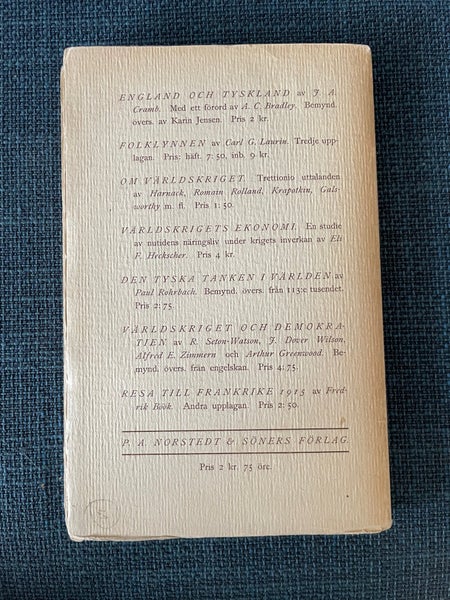 ENGLAND OCH TYSKLAND av J. A.
Cramb. Med ett förord av A. C. Bradley. Bemynd.
övers. av Karin Jensen. Pris 2 kr.
FOLKLYNNEN av Carl G. Laurin. Tredje upp-
lagan. Pris: häft. 7: 50, inb. 9 kr.
OM VÄRLDSKRIGET. Trettionio uttalanden
av Harnack, Romain Rolland, Krapotkin, Gals-
worthy m. fl. Pris 1: 50.
VÄRLDSKRIGETS EKONOMI. En studie
av nutidens näringsliv under krigets inverkan av Eli
F. Heckscher. Pris 4 kr.
DEN TYSKA TANKEN I VÄRLDEN av
Paul Rohrbach. Bemynd. övers. från 113:e tusendet.
Pris 2: 75.
VÄRLDSKRIGET OCH DEMOKRA-
TIEN av R. Seton-Watson, J. Dover Wilson,
Alfred E. Zimmern och Arthur Greenwood. Be-
mynd. övers. från engelskan. Pris 4: 75.
RESA TILL FRANKRIKE 1915 av Fred-
rik Böök. Andra upplagan. Pris 2: 50.
P. A. NORSTEDT & SÖNERS FÖRLAG.
Pris 2 kr. 75 öre.